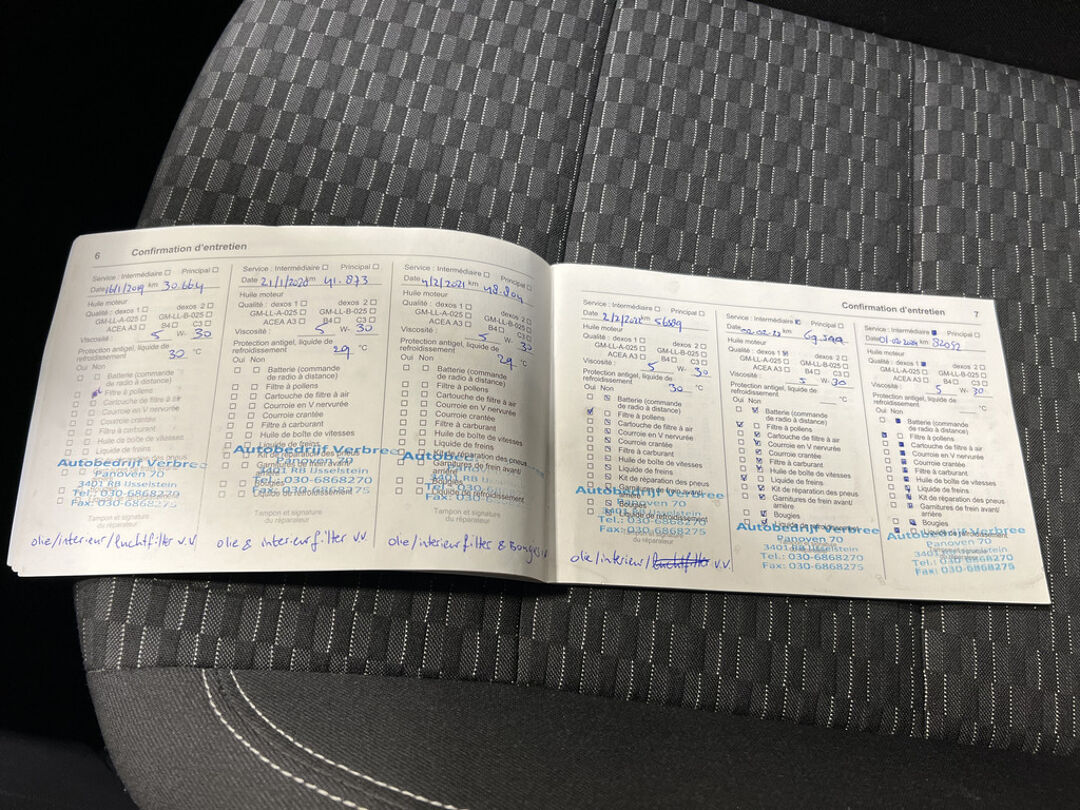 6 Confirmation d'entretien
Service : Intermédiaire Principal
Date 16/1/2019 km 30.664
Huile moteur
Qualité : dexos 1 dexos 2
GM-LL-A-025 GM-LL-B-025
ACEA A3 B4 C3
Viscosité : 5 W- 30
Protection antigel, liquide de
refroidissement 30 °C
Oui Non
Batterie (commande
de radio à distance)
Filtre à pollens
Cartouche de filtre à air
Courroie en V nervurée
Courroie crantée
Filtre à carburant
Huile de boîte de vitesses
Liquide de freins
Autobedrijf Verbree
Panoven 70
3401 RB IJsselstein
Tel.: 030-6868270
Fax: 030-6868275
Tampon et signature
du réparateur
olie/interieur/luchtfilter v.v
Service : Intermédiaire Principal
Date 21/1/2020 km 41.873
Huile moteur
Qualité : dexos 1 dexos 2
GM-LL-A-025 GM-LL-B-025
ACEA A3 B4 C3
Viscosité : 5 W- 30
Protection antigel, liquide de
refroidissement 29 °C
Oui Non
Batterie (commande
de radio à distance)
Filtre à pollens
Cartouche de filtre à air
Courroie en V nervurée
Courroie crantée
Filtre à carburant
Huile de boîte de vitesses
Liquide de freins
Kit de réparation des pneus
Garnitures de frein avant/
Bougies
Liquide de refroidissement
Autobedrijf Verbree
Panoven 70
3401 RB IJsselstein
Tel.: 030-6868270
Fax: 030-6868275
Tampon et signature
du réparateur
olie & interieurfilter v.v.
Service : Intermédiaire Principal
Date 4/2/2021 km 48.804
Huile moteur
Qualité : dexos 1 dexos 2
GM-LL-A-025 GM-LL-B-025
ACEA A3 B4 C3
Viscosité : 5 W- 30
Protection antigel, liquide de
refroidissement 29 °C
Oui Non
Batterie (commande
de radio à distance)
Filtre à pollens
Cartouche de filtre à air
Courroie en V nervurée
Courroie crantée
Filtre à carburant
Huile de boîte de vitesses
Liquide de freins
Kit de réparation des pneus
Garnitures de frein avant/
arrière
Bougies
Liquide de refroidissement
Tampon et signature
du réparateur
olie/interieurfilter & Bougies
Confirmation d'entretien 7
Service : Intermédiaire Principal
Date 2/2/2022 km
Huile moteur
Qualité : dexos 1 dexos 2
GM-LL-A-025 GM-LL-B-025
ACEA A3 B4 C3
Viscosité : 5 W- 30
Protection antigel, liquide de
refroidissement 30 °C
Oui Non
Batterie (commande
de radio à distance)
Filtre à pollens
Cartouche de filtre à air
Courroie en V nervurée
Courroie crantée
Filtre à carburant
Huile de boîte de vitesses
Liquide de freins
Kit de réparation des pneus
Garnitures de frein avant/
arrière
Bougies
Liquide de refroidissement
Autobedrijf Verbree
Panoven 70
3401 RB IJsselstein
Tel.: 030-6868270
Fax: 030-6868275
olie/interieur/luchtfilter v.v.
Service : Intermédiaire Principal
Date km
Huile moteur
Qualité : dexos 1 dexos 2
GM-LL-A-025 GM-LL-B-025
ACEA A3 B4 C3
Viscosité : 5 W- 30
Protection antigel, liquide de
refroidissement °C
Oui Non
Batterie (commande
de radio à distance)
Filtre à pollens
Cartouche de filtre à air
Courroie en V nervurée
Courroie crantée
Filtre à carburant
Huile de boîte de vitesses
Liquide de freins
Kit de réparation des pneus
Garnitures de frein avant/
arrière
Bougies
Liquide de refroidissement
Autobedrijf Verbree
Panoven 70
3401 RB IJsselstein
Tel.: 030-6868270
Fax: 030-6868275
Service : Intermédiaire Principal
Date 01-02-2024 km 82052
Huile moteur
Qualité : dexos 1 dexos 2
GM-LL-A-025 GM-LL-B-025
ACEA A3 B4 C3
Viscosité : 5 W- 30
Protection antigel, liquide de
refroidissement °C
Oui Non
Batterie (commande
de radio à distance)
Filtre à pollens
Cartouche de filtre à air
Courroie en V nervurée
Courroie crantée
Filtre à carburant
Huile de boîte de vitesses
Liquide de freins
Kit de réparation des pneus
Garnitures de frein avant/
arrière
Bougies
Liquide de refroidissement
Autobedrijf Verbree
Panoven 70
3401 RB IJsselstein
Tel.: 030-6868270
Fax: 030-6868275